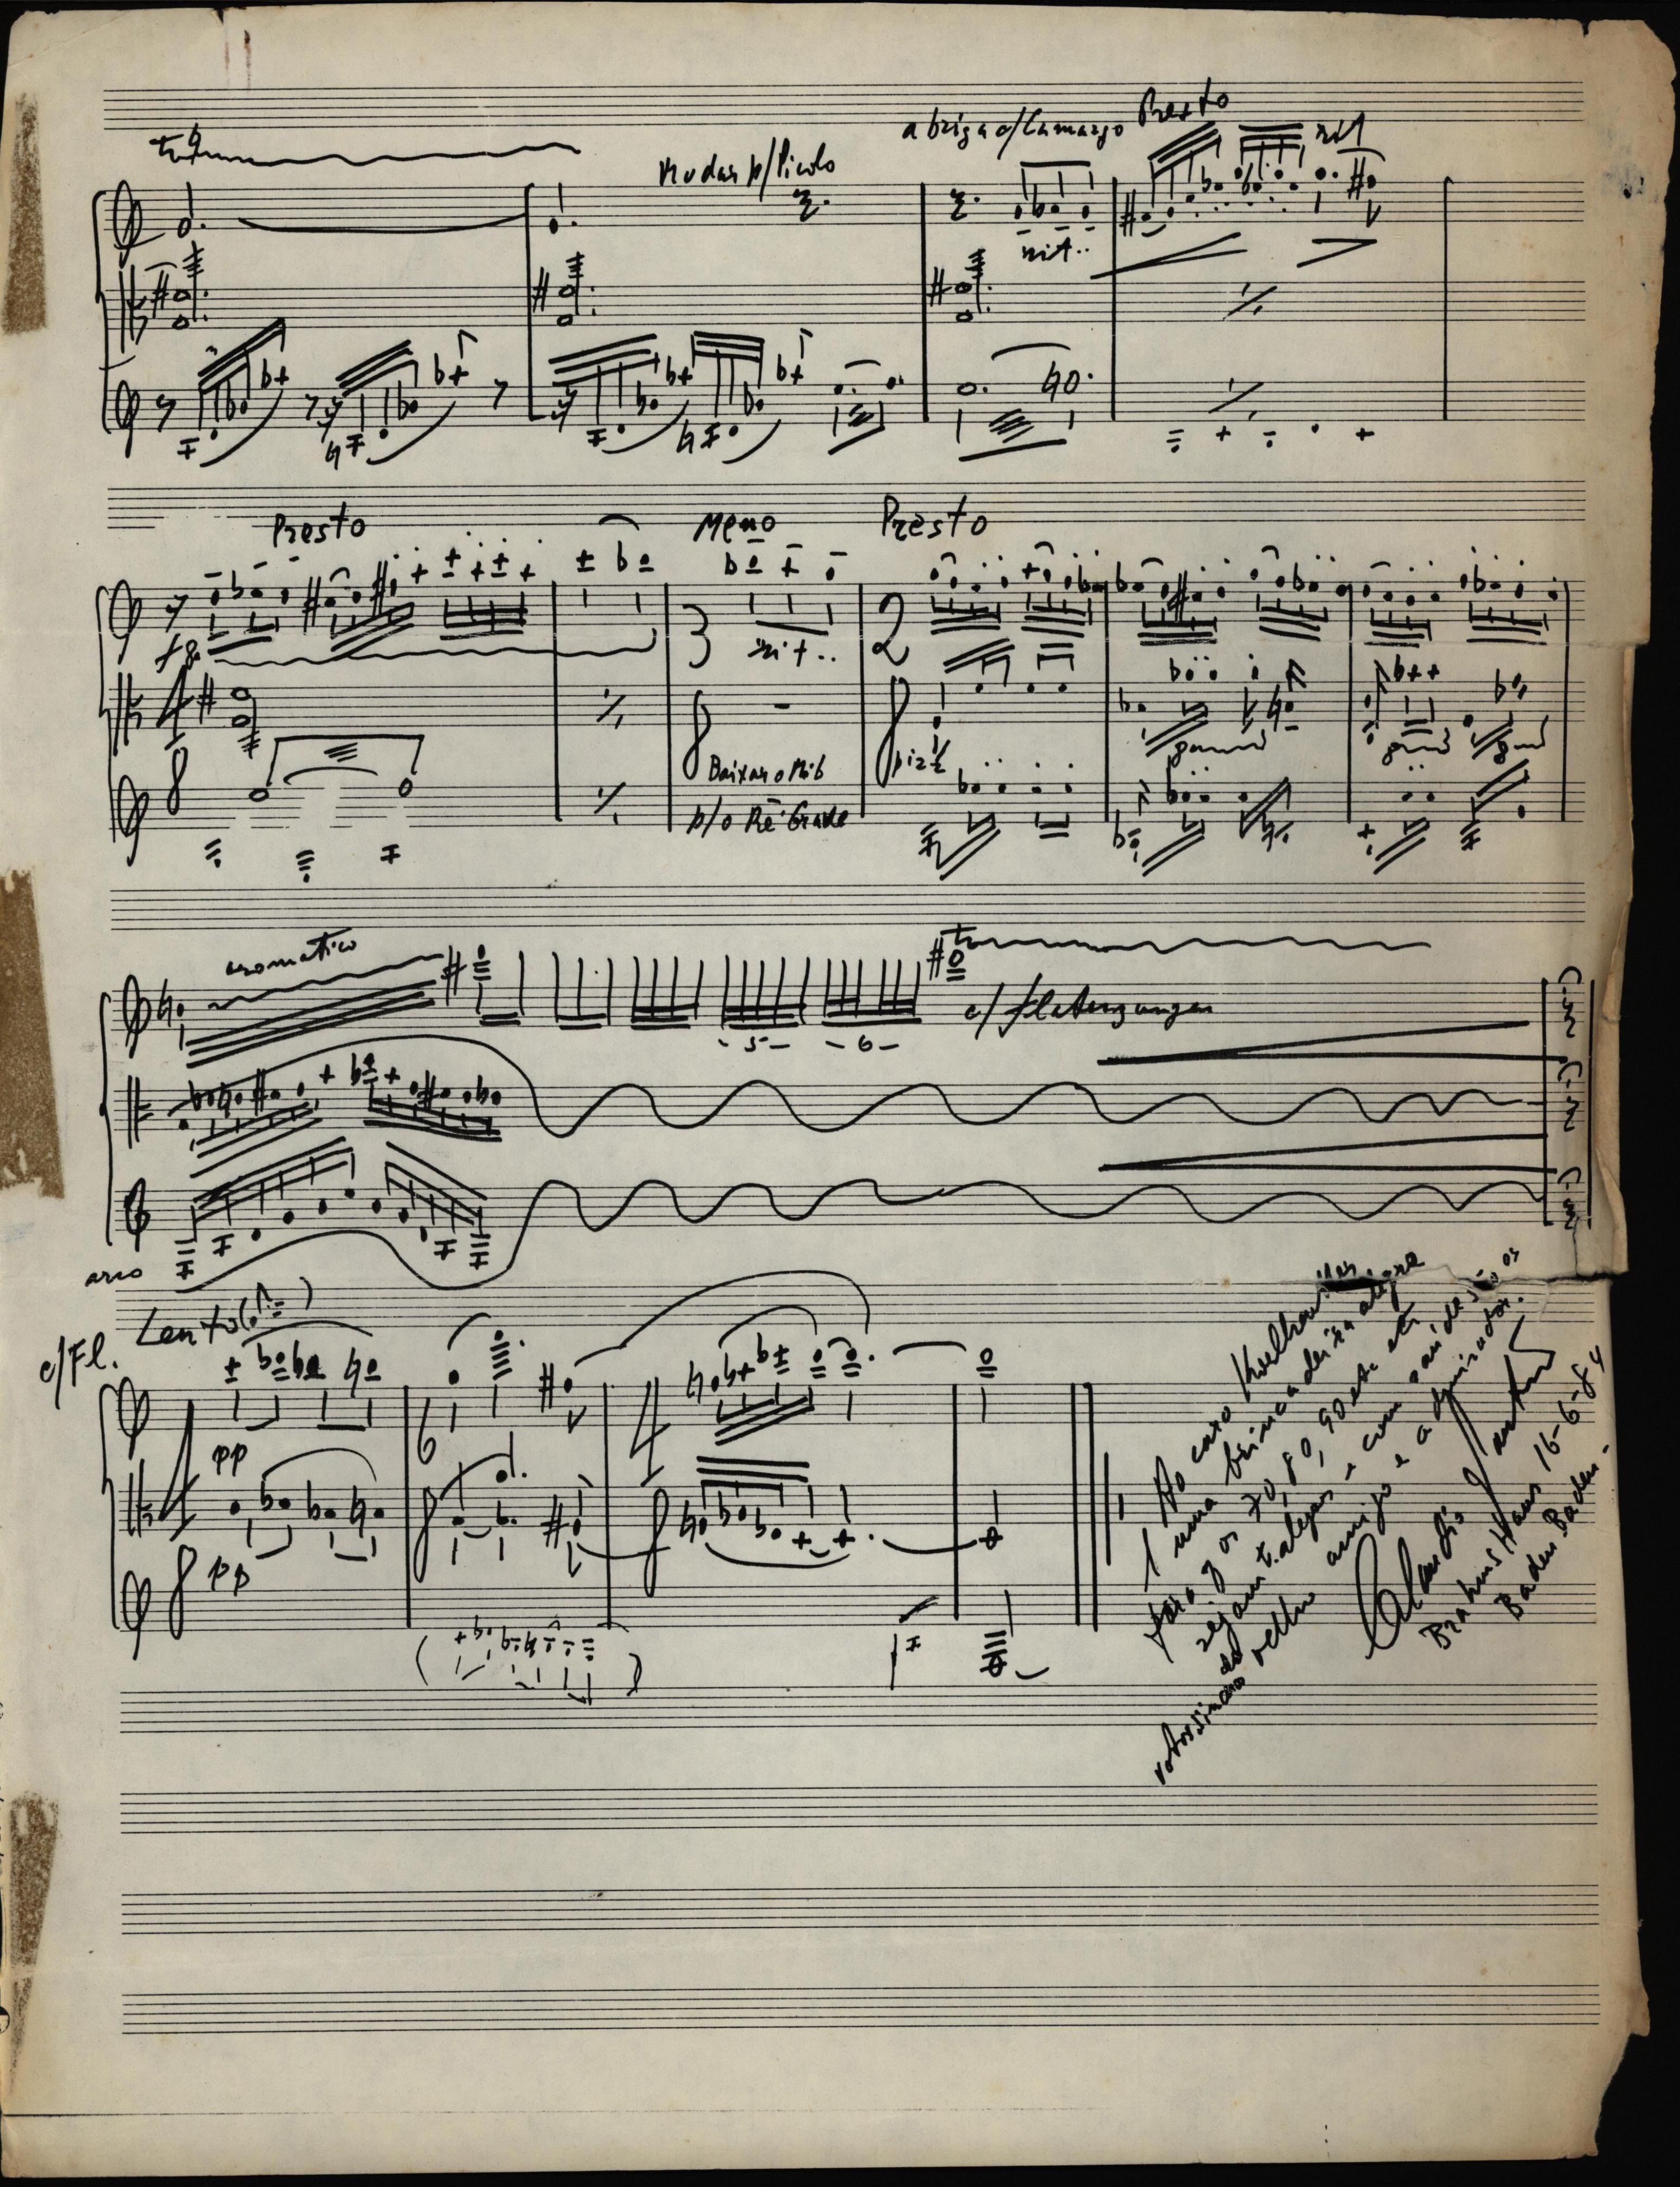 tr
Mudar p/ Picolo
a briga c/ Camargo Presto
rit
rit..
Presto
Meno
Presto
rit..
3
2
4
8
8
8
pizz
Baixar o Mib
p/o Ré Grave
cromatico
tr
c/ flaterzungen
5
6
arco
Lento
c/Fl.
pp
pp
4
8
6
8
4
8
Ao caro Koellreutter,
1 uma brincadeira alegre
para q os 70, 80, 90 etc etc
sejam t. alegres e com saúde, são os
votos sinceros
do velho amigo e admirador.
Claudio Santoro
Brahms Haus 16-6-84
Baden Baden-